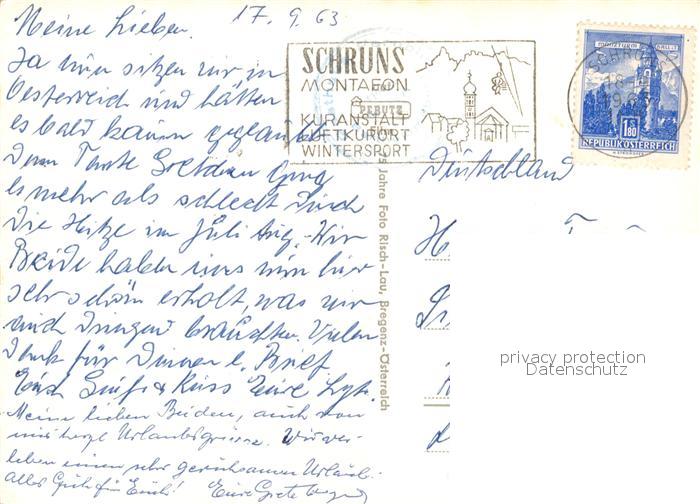 17. 9. 63
Meine Lieben.
Ja nun sitzen wir in
Oesterreich und hätten
es bald kaum geglaubt
Denn Tante Gretchen ging
es mehr als schlecht durch
die Hitze im Juli Aug. Wir
Beide haben uns nun hier
sehr schön erholt, was wir
auch dringend brauchten. Vielen
Dank für Deinen l. Brief
Gruß & Kuss Eure
Meine lieben Beiden, auch von
mir herzl. Urlaubsgrüsse. Wir ver-
leben einen sehr geruhsamen Urlaub.
Alles Gute für Euch! Eure Grete
SCHRUNS
MONTAFON
KURANSTALT
LUFTKURORT
WINTERSPORT
SCHRUNS
1.80
REPUBLIK ÖSTERREICH
Jahre Foto Risch-Lau, Bregenz-Österreich
Deutschland
privacy protection
Datenschutz